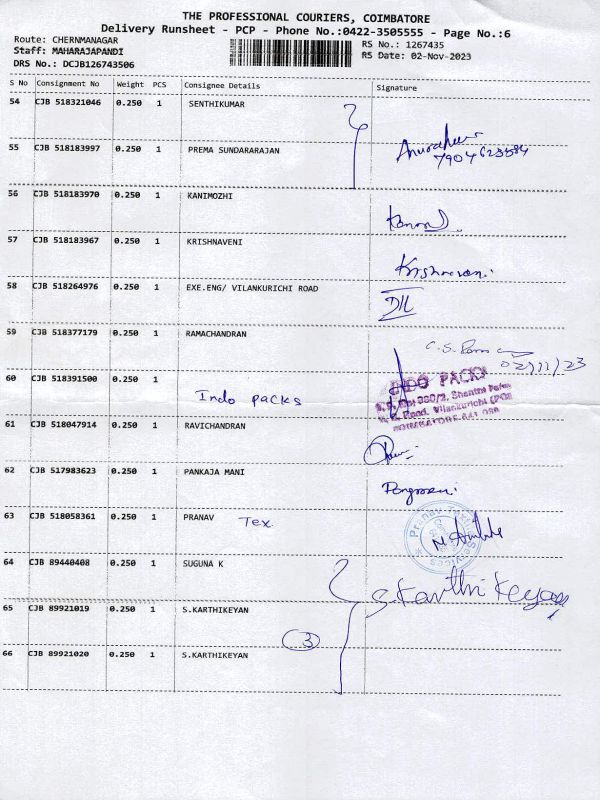 THE PROFESSIONAL COURIERS, COIMBATORE
Delivery Runsheet - PCP - Phone No.:0422-3505555 - Page No.:6
Route: CHERNMANAGAR
Staff: MAHARAJAPANDI
DRS No.: DCJB126743506
RS No.: 1267435
RS Date: 02-Nov-2023
S No Consignment No Weight PCS Consignee Details Signature
54 CJB 518321046 0.250 1 SENTHIKUMAR
55 CJB 518183997 0.250 1 PREMA SUNDARARAJAN
7904623584
56 CJB 518183970 0.250 1 KANIMOZHI
57 CJB 518183967 0.250 1 KRISHNAVENI
Krishnaveni
58 CJB 518264976 0.250 1 EXE.ENG/ VILANKURICHI ROAD
59 CJB 518377179 0.250 1 RAMACHANDRAN
02/11/23
60 CJB 518391500 0.250 1 Indo packs
INDO PACKS
61 CJB 518047914 0.250 1 RAVICHANDRAN
62 CJB 517983623 0.250 1 PANKAJA MANI
63 CJB 518058361 0.250 1 PRANAV Tex.
64 CJB 89440408 0.250 1 SUGUNA K
S. Karthikeyan
65 CJB 89921019 0.250 1 S.KARTHIKEYAN
3
66 CJB 89921020 0.250 1 S.KARTHIKEYAN